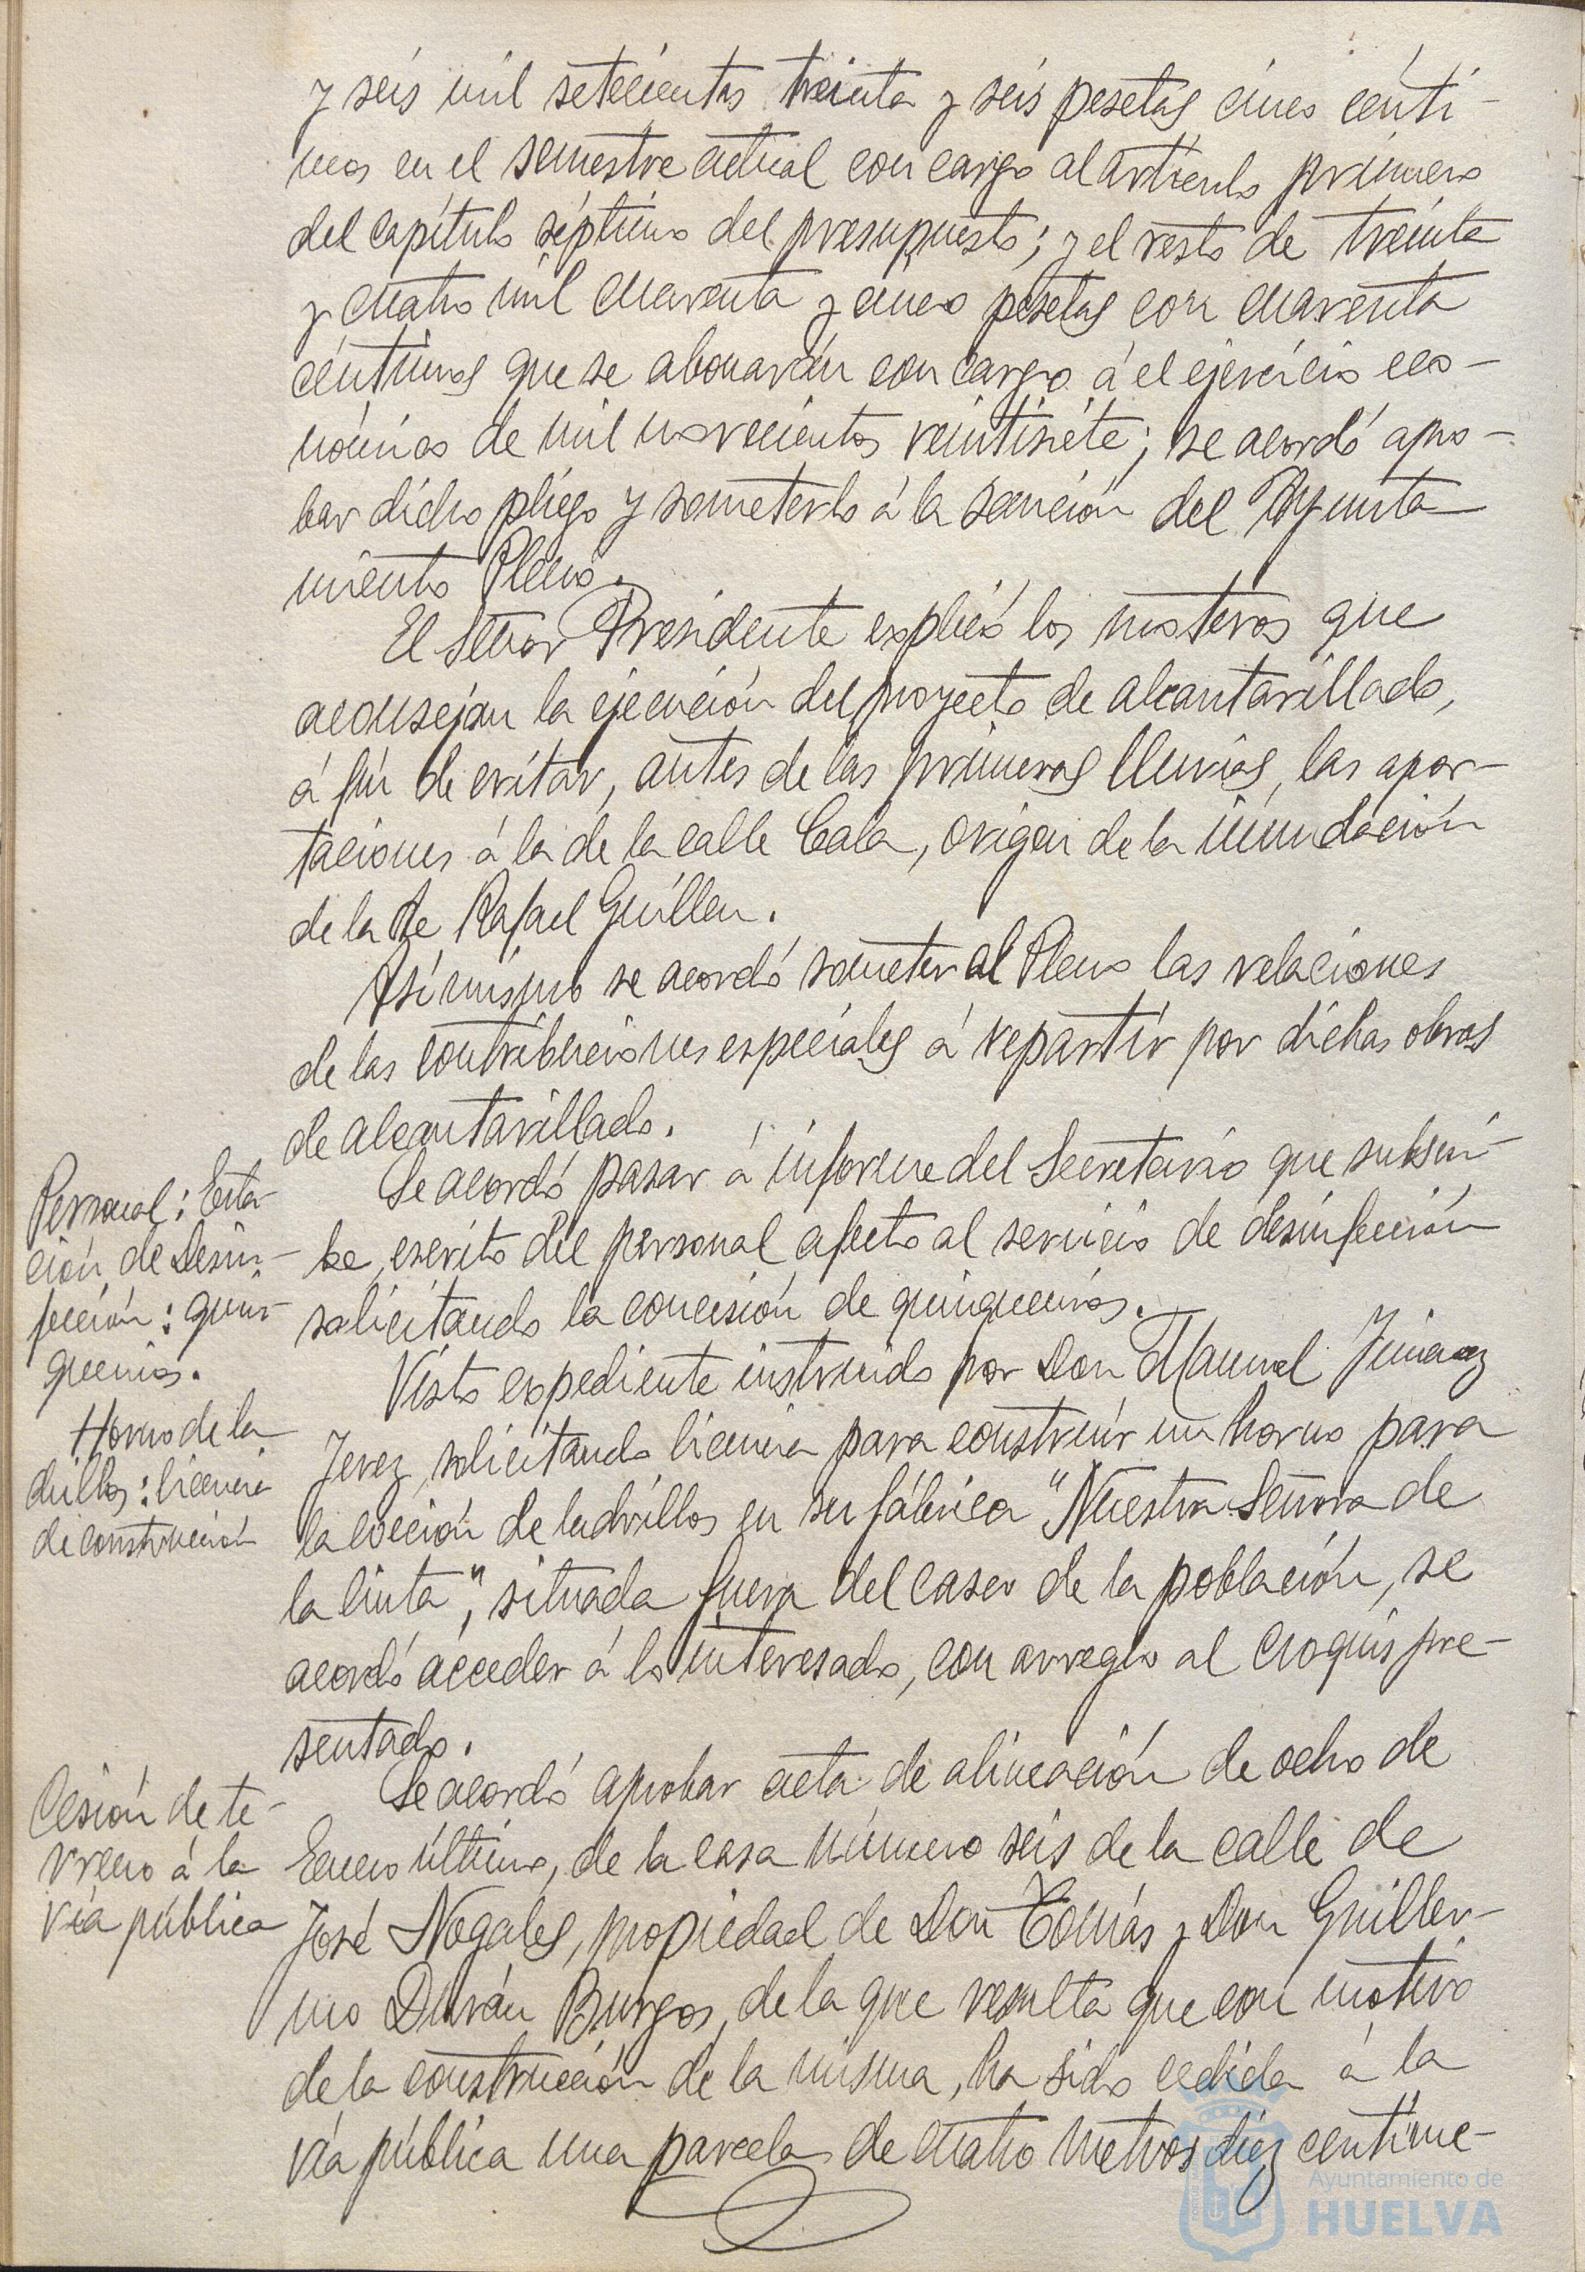 y seis mil setecientas treinta y seis pesetas cinco cénti-
mos en el semestre actual con cargo al artículo primero
del capítulo séptimo del presupuesto; y el resto de treinta
y cuatro mil cuarenta y cinco pesetas con cuarenta
céntimos que se abonarán con cargo á el ejercicio eco-
nómico de mil novecientos veintisiete; se acordó apro-
bar dicho pliego y someterlo á la sanción del Ayunta-
miento Pleno.
El Señor Presidente explicó los motivos que
aconsejan la ejecución del proyecto de alcantarillado,
á fin de evitar, antes de las primeras lluvias, las apor-
taciones á la de la calle Cala, origen de la inundación
de la de Rafael Guillen.
Asimismo se acordó someter al Pleno las relaciones
de las contribuciones especiales á repartir por dichas obras
de alcantarillado.
Personal: Esta-
ción de Desin-
fección: quin-
quenios.
Se acordó pasar á informe del Secretario que suscri-
be, escrito del personal afecto al servicio de desinfección
solicitando la concesión de quinquenios.
Horno de la-
drillos: licencia
de construcción
Visto expediente instruido por Don Manuel Jimenez
Jerez, solicitando licencia para construir un horno para
la cocción de ladrillos en su fábrica "Nuestra Señora de
la Cinta", situada fuera del casco de la población, se
acordó acceder á lo interesado, con arreglo al croquis pre-
sentado.
Cesión de te-
rreno á la
vía pública
Se acordó aprobar acta de alineación de ocho de
Enero último, de la casa número seis de la calle de
José Nogales, propiedad de Don Tomás y Don Guiller-
mo Durán Burgos, de la que resulta que con motivo
de la construcción de la misma, ha sido cedida á la
vía pública una parcela de cuatro metros diez centíme-
Ayuntamiento de
HUELVA